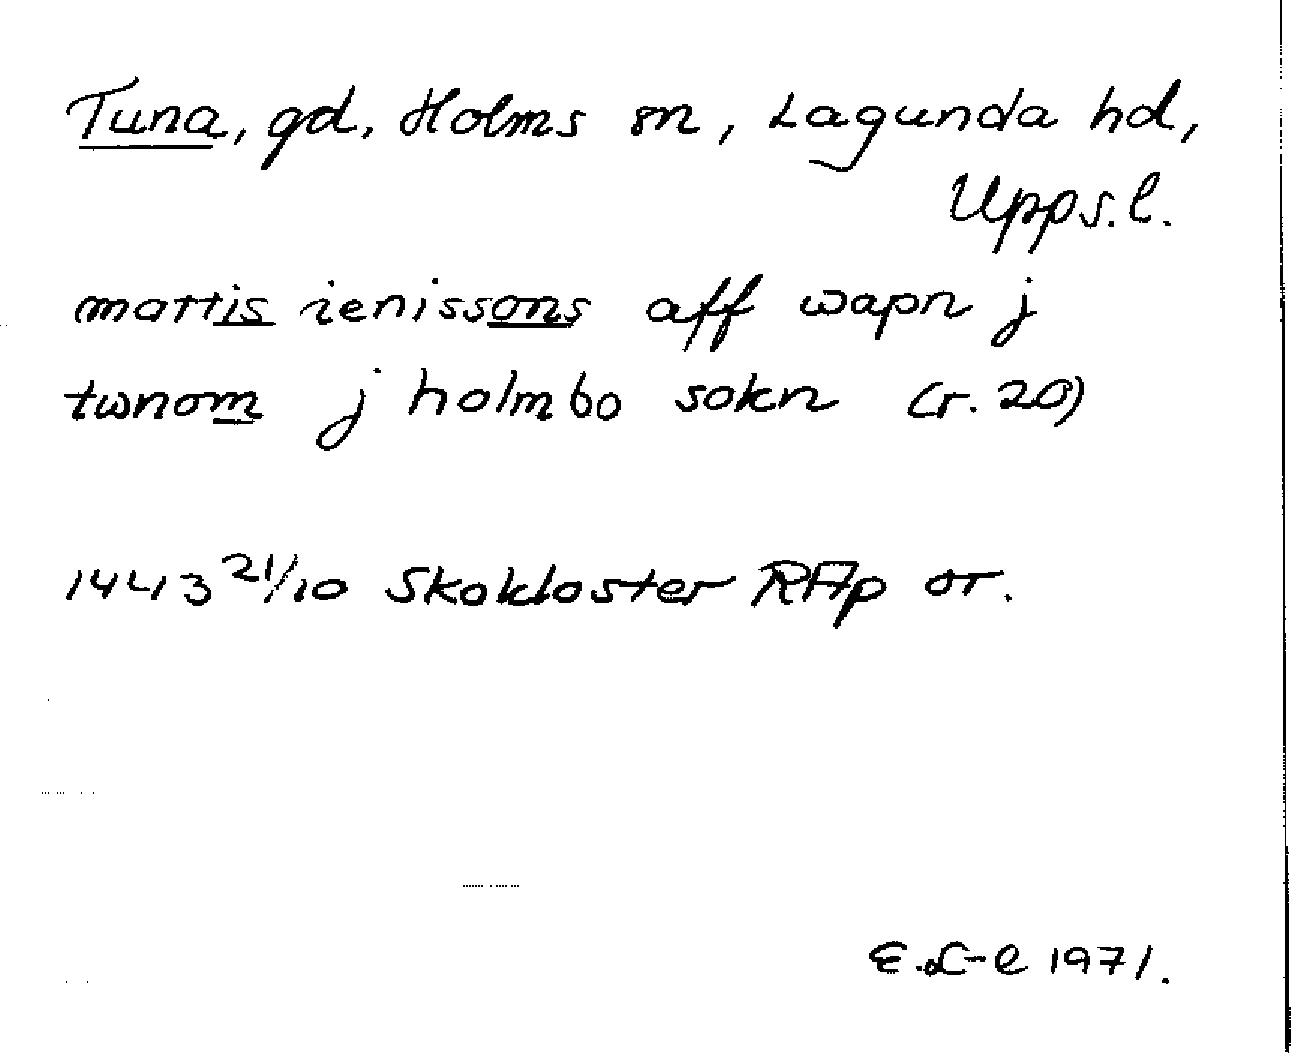 Tuna, gd, Holms sn, Lagunda hd,
Upps.l.
mattis ienissons aff wapn j
twnom j holmbo sokn (r. 20)
1443 21/10 Skokloster RAp or.
E.L-e 1971.